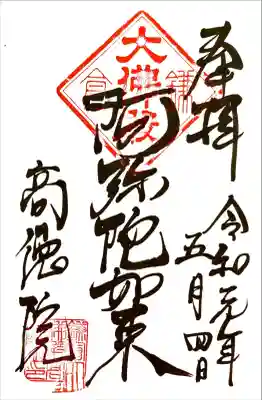 奉拝
令和元年
五月四日
大佛殿
鎌倉
阿弥陀如来
高徳院